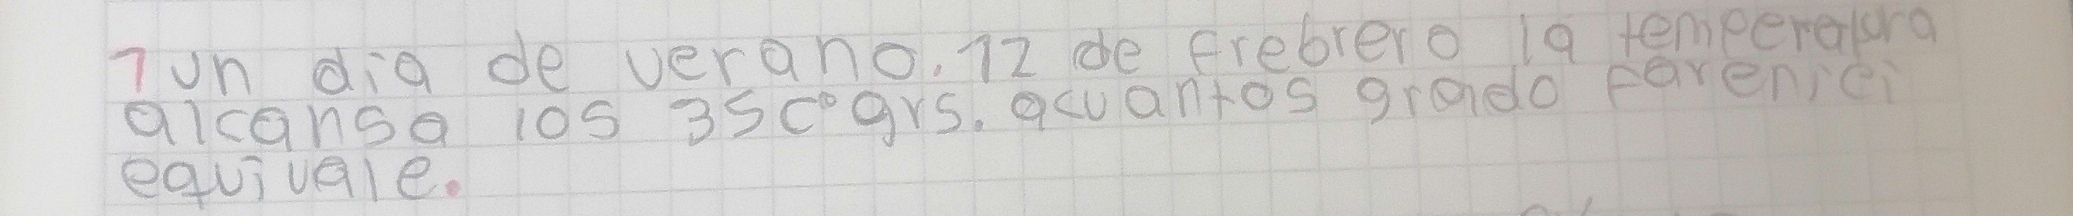 1 un dia de verano. 12 de frebrero la temperatura
alcansa los 35 c° grs. acuantos grado farenici
equivale.